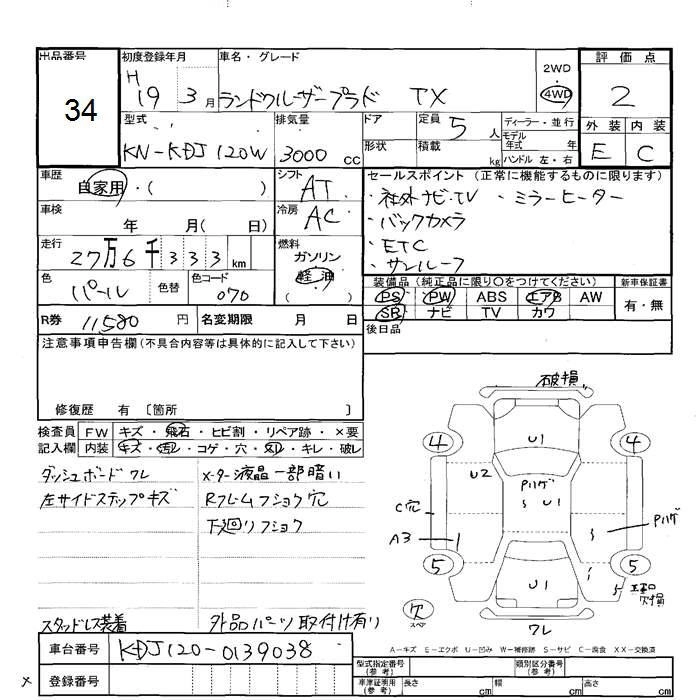 出品番号 34
初度登録年月 H 19 3月
車名・グレード ランドクルーザープラド TX
2WD・4WD
評価点 2
外装 E 内装 C
型式 KN-KDJ120W
排気量 3000 cc
ドア
形状
定員 5人
積載 kg
ディーラー・並行
モデル年式 年
ハンドル 左・右
車歴 自家用・( )
シフト AT
車検 年 月( 日)
冷房 AC
走行 27万6千333 km
燃料 ガソリン 軽油 ( )
色 パール 色替
色コード 070
セールスポイント(正常に機能するものに限ります)
・社外ナビ・TV ・ミラーヒーター
・バックカメラ
・ETC
・サンルーフ
装備品(純正品に限り○をつけてください) 新車保証書
PS PW ABS エアB AW 有・無
SR ナビ TV カワ
後日品
R券 11580 円 名変期限 月 日
注意事項申告欄(不具合内容等は具体的に記入して下さい)
修復歴 有 [箇所 ]
検査員記入欄
FW キズ・飛石・ヒビ割・リペア跡・×要
内装 キズ・汚レ・コゲ・穴・スレ・キレ・破レ
ダッシュボードワレ メーター液晶一部暗い
左サイドステップキズ Rフレームフショク穴
下廻リフショク
スタッドレス装着 外品パーツ取付け有り
破損
4 U1 4
U2 Pハゲ
C穴 S U1 Pハゲ
A3 S
5 U1 5
穴 スペア ワレ
A-キズ E-エクボ U-凹み W-補修跡 S-サビ C-腐食 XX-交換済
車台番号 KDJ120-0139038
× 登録番号
型式指定番号(参考) 類別区分番号(参考)
車庫証明用(参考) 長さ cm 幅 cm 高さ cm